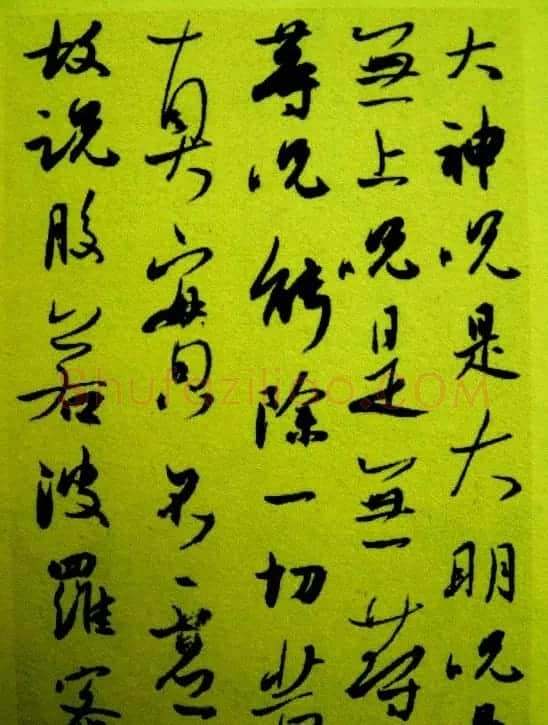 大神呪是大明呪是
無上呪是無等
等呪能除一切苦
真實不虛
故說般若波羅蜜
Shufaziliao.COM